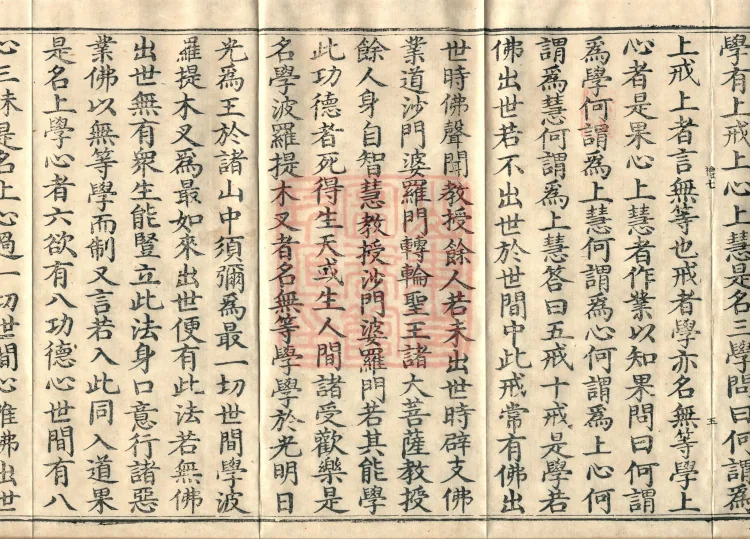 學有上戒上心上慧是名三學問曰何謂爲
上戒上者言無等也戒者學亦名無等學上
心者是果心上慧者作業以知果問曰何謂
爲學何謂爲上慧何謂爲心何謂爲上心何
謂爲慧何謂爲上慧答曰五戒十戒是學若
佛出世若不出世於世間中此戒常有佛出
世時佛聲聞教授餘人若未出世時辟支佛
業道沙門婆羅門轉輪聖王諸大菩薩教授
餘人身自智慧教授沙門婆羅門若其能學
此功德者死得生天或生人間諸受歡樂是
名學波羅提木叉者名無等學學於光明日
光爲王於諸山中須彌爲最一切世間學波
羅提木叉爲最如來出世便有此法若無佛
出世無有眾生能豎立此法身口意行諸惡
業佛以無等學而制又言若入此同入道果
是名上學心者六欲有八功德心世間有八
心三昧是名上心過一切世間心唯佛出世
五